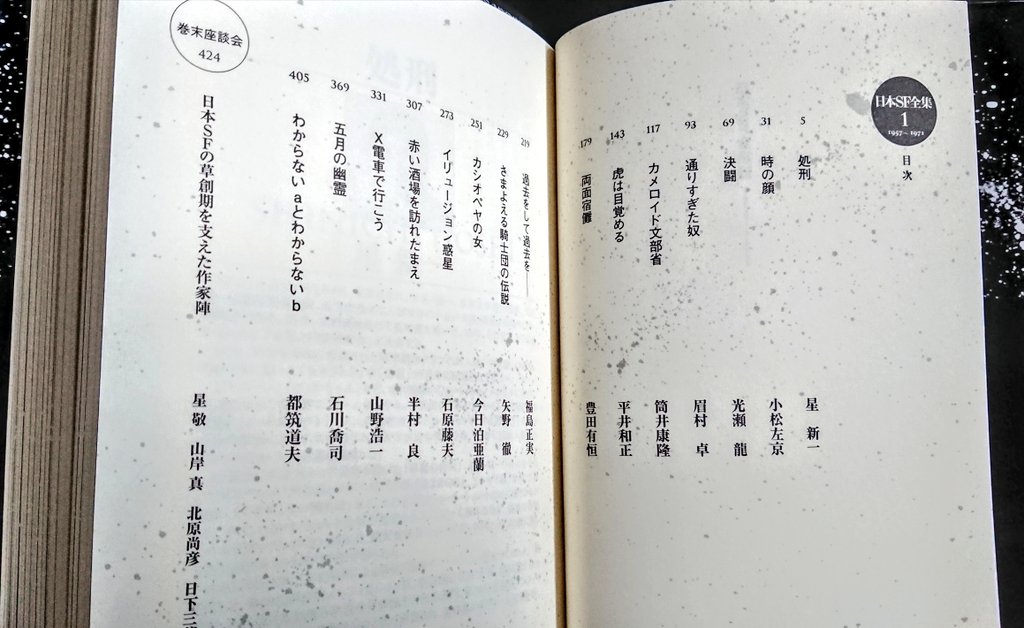 日本SF全集
1
1957〜1971
目次
5 処刑 星 新一
31 時の顔 小松左京
69 決闘 光瀬 龍
93 通りすぎた奴 眉村 卓
117 カメロイド文部省 筒井康隆
143 虎は目覚める 平井和正
179 両面宿儺 豊田有恒
219 過去をして過去を── 福島正実
229 さまよえる騎士団の伝説 矢野 徹
251 カシオペヤの女 今日泊亜蘭
273 イリュージョン惑星 石原藤夫
307 赤い酒場を訪れたまえ 半村 良
331 X電車で行こう 山野浩一
369 五月の幽霊 石川喬司
405 わからないaとわからないb 都筑道夫
巻末座談会
424
日本SFの草創期を支えた作家陣 星 敬 山岸 真 北原尚彦 日下三